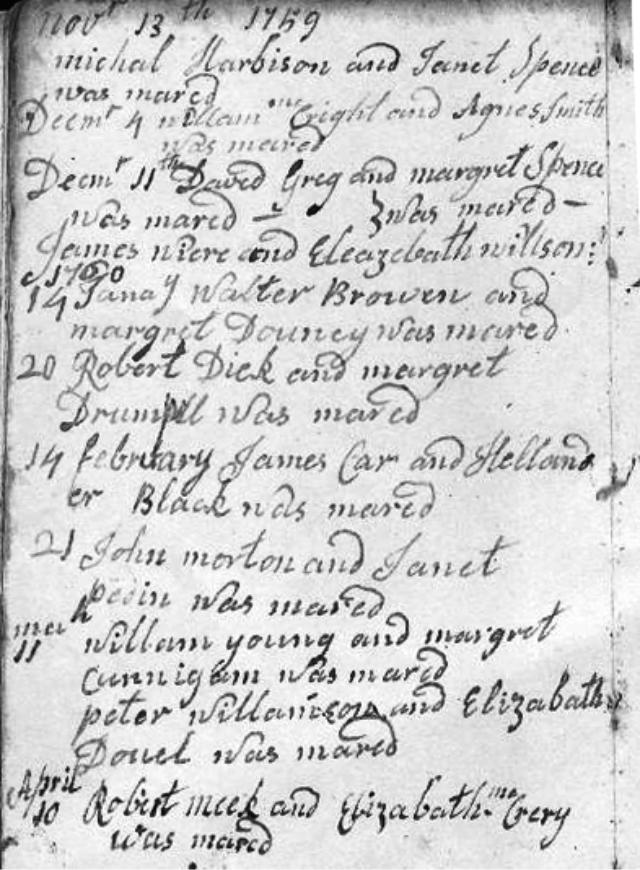 Novr 13th 1759
michal Harbison and Janet Spence
was mared
Decmr 4 willam mc Cright and Agnes Smith
was mared
Decmr 11th Daved Greg and margret Spence
was mared — }was mared —
James niere and Eleazebath willson
1760
14 Janay Walter Browen and
margret Douney was mared
20 Robert Dick and margret
Drumpll was mared
14 february James Car and Helland
er Black was mared
21 John morton and Janet
pedin was mared
march
11 willam young and margret
Cunnigam was mared
peter willamson and Elizabath
Douel was mared
April
10 Robert meek and Elizabath mc Crery
was mared